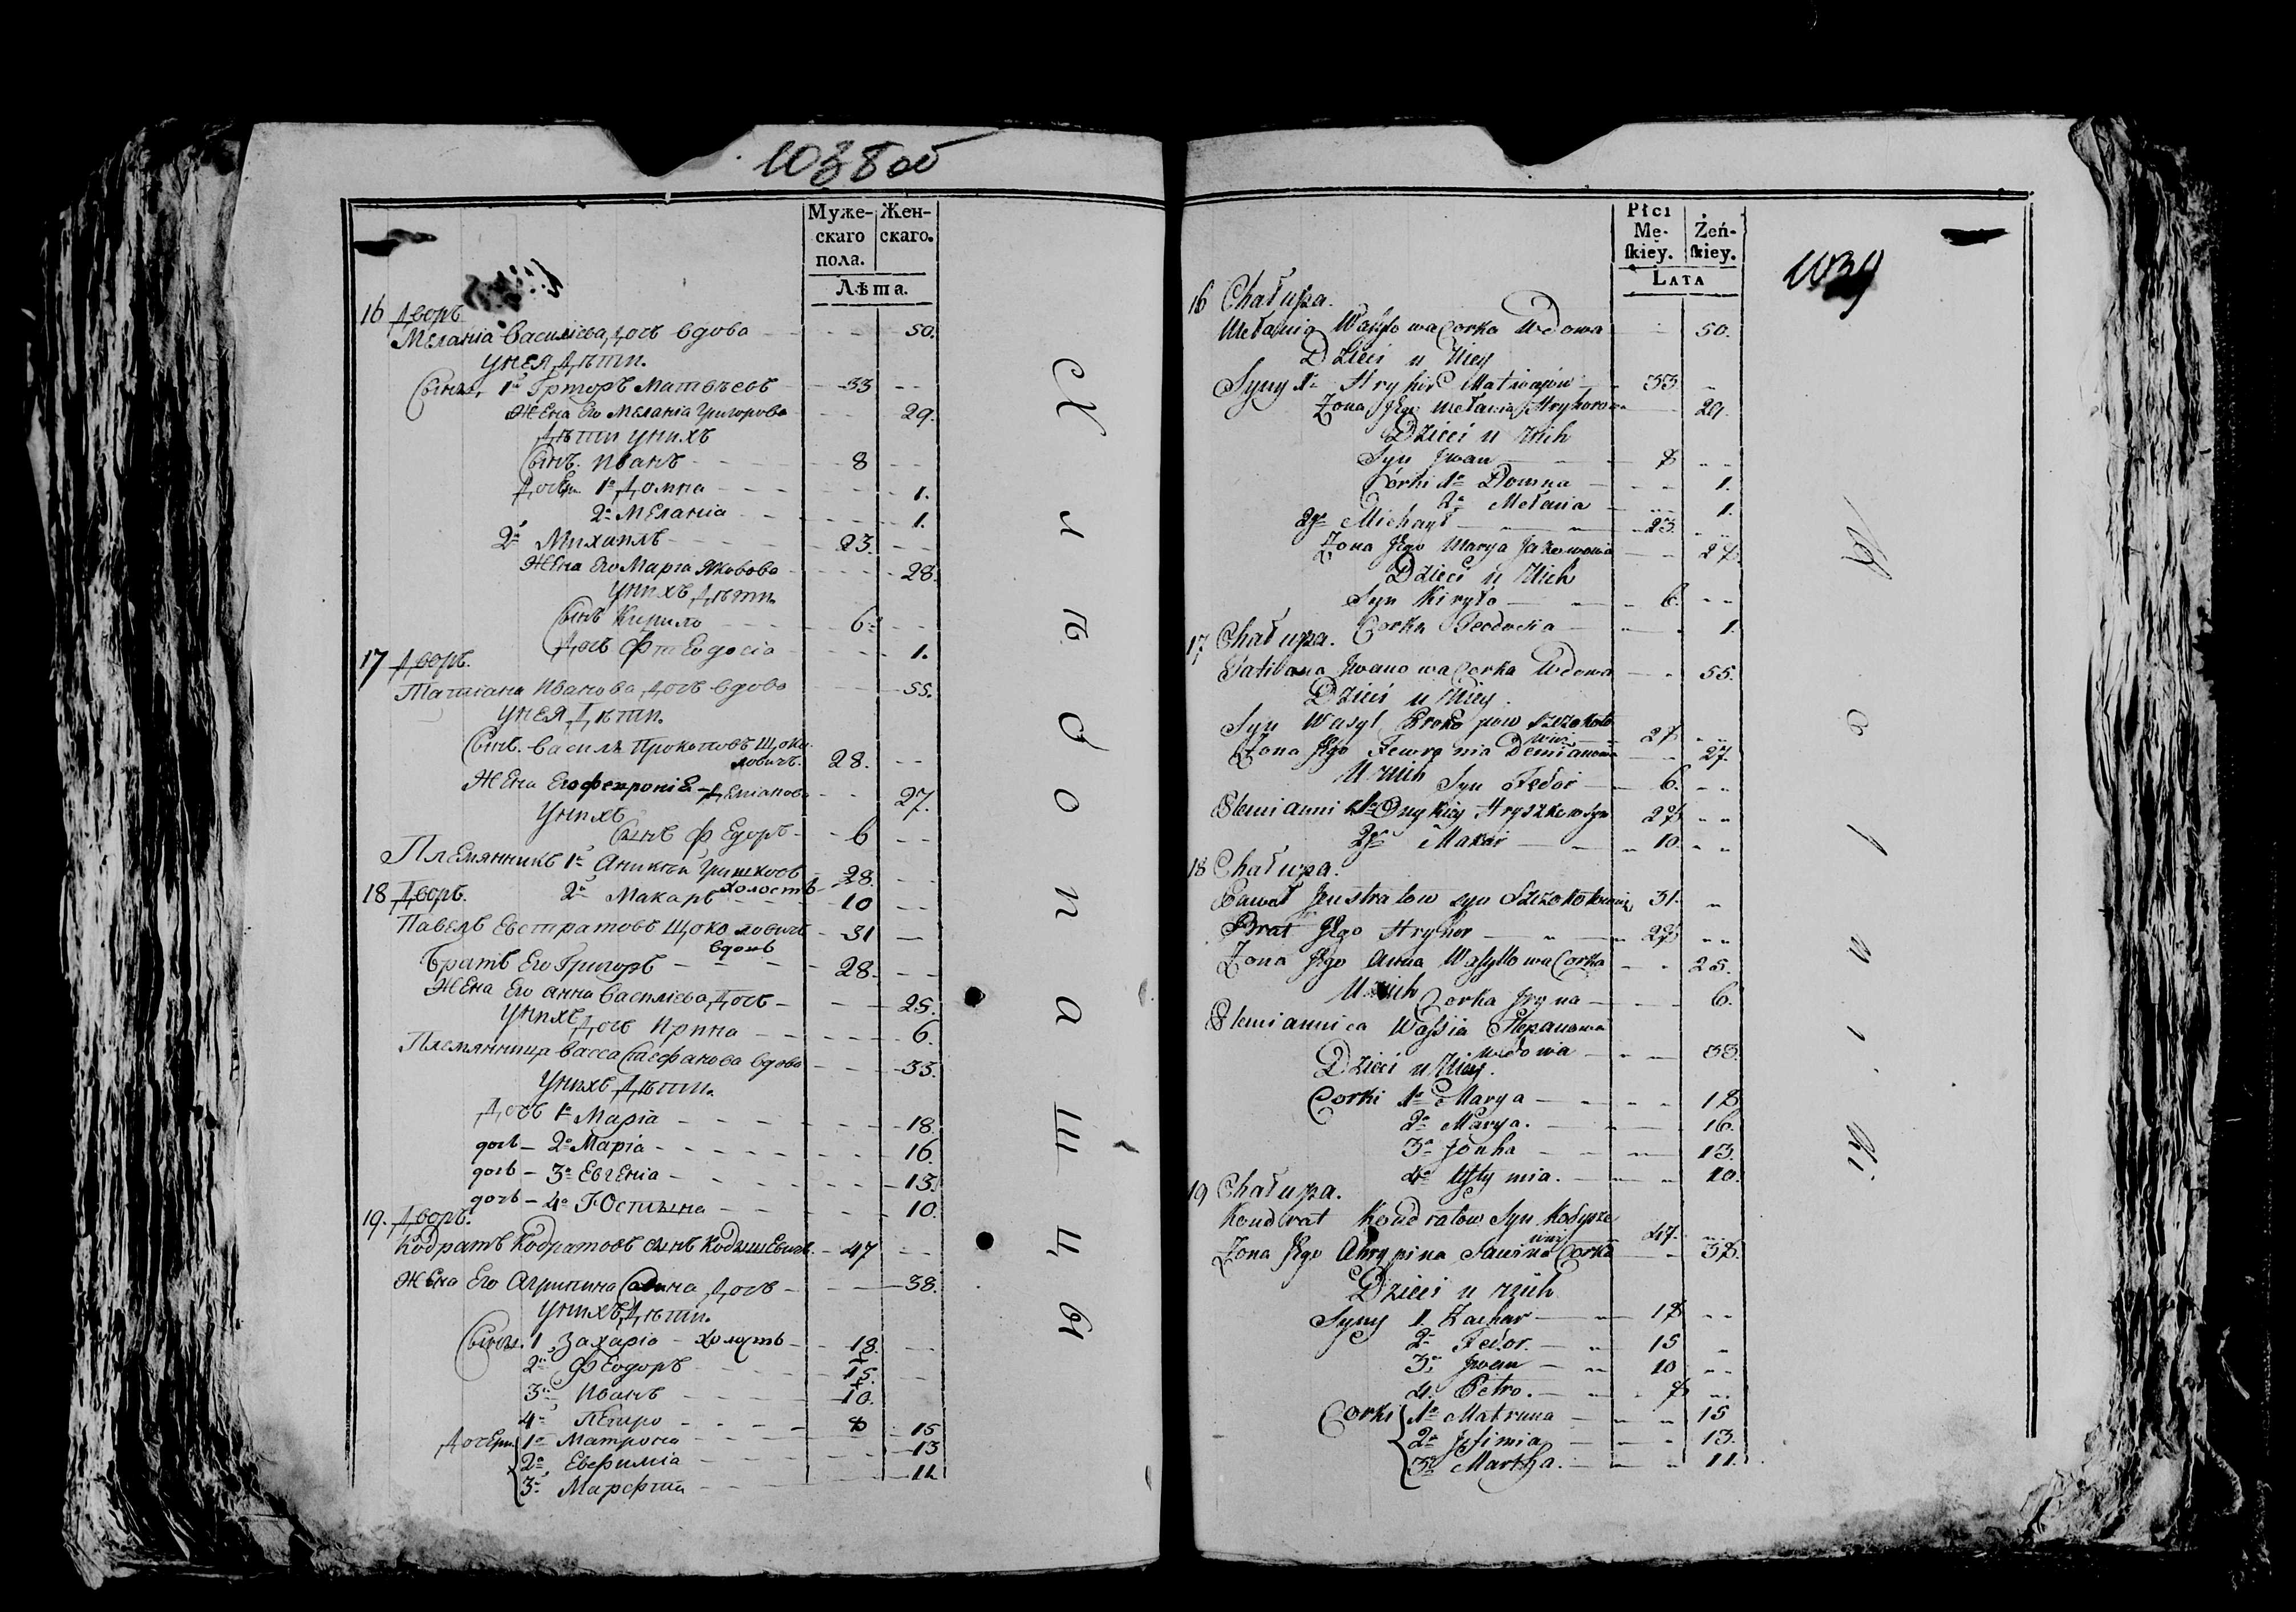 1038 об
Муже-
скаго
пола.
Жен-
скаго.
Лѣта.
16 Дворъ
Меланіа Василіева дочь вдова 50.
У нея дѣти.
Сыны, 1й Григоръ Матвѣевъ 33
Жена его Меланіа Григорова 29.
Дѣти у нихъ
Сынъ Иванъ 8
Дочери 1я Домна 1.
2я Меланіа 1.
2й Михаилъ 23.
Жена его Маріа Яковова 28.
У нихъ дѣти
Сынъ Кирило 6.
Дочь Феодосіа 1.
17 Дворъ.
Татіана Иванова дочь вдова 55.
У нея дѣти.
Сынъ Василь Прокоповъ Щоко-
ловичъ. 28.
Жена его Февроніа Деміанова 27.
У нихъ
Сынъ Федоръ 6
Племянникъ 1й Аникѣй Гришковъ 28.
холостъ
2й Макаръ 10
18 Дворъ.
Павелъ Евстратовъ Щоколовичъ 31
вдовъ
Братъ его Григоръ 28.
Жена его Анна Василіева дочь 25.
У нихъ дочь Ирина 6.
Племянница Васса Стефанова вдова 33.
У нихъ дѣти.
Дочь 1я Маріа 18.
дочь 2я Маріа 16.
дочь 3я Евгеніа 13.
дочь 4я Юстина 10.
19. Дворъ.
Кодратъ Кодратовъ сынъ Кодышевичъ. 47
Жена его Агрипина Савина дочь 38.
У нихъ дѣти.
Сыны. 1 Захаріа холостъ 18.
2й Феодоръ 15.
3й Иванъ 10.
4й Петро 8
Дочери 1я Матрона 15
2я Евфиміа 13
3я Марфа 11
Хлѣбопашцы
Płci
Mę-
ſkiey.
Żeń-
ſkiey.
Lata
1039
16 Chałupa.
Mełania Wasylowa Corka Wdowa 50.
Dzieci u Niey
Syny 1. Hryhir Matwiejów 33.
Zona Jego Mełania Hryhorowa 29.
Dzieci u nich
Syn Jwan 8
Córki 1a Domna 1.
2a Mełania 1.
2gi Michaył 23.
Zona Jego Marya Jakowowa 28.
Dzieci u Nich
Syn Kiryło 6.
Corka Teodosia 1.
17 Chałupa.
Tatiana Jwanowa Corka Wdowa 55.
Dzieci u Niey.
Syn Wasyl Prokopow Szczokoło
wicz 28
Zona Jego Fewronia Demianowa 27.
U nich Syn Fedor 6.
Plemianniki 1. Onykiey Hryszkow syn 28
2gi Makar 10.
18 Chałupa.
Paweł Jeustratow syn Szczokołowicz 31.
Brat Jego Hryhor 28
Zona Jego Anna Wasylowa Corka 25.
U nich Corka Jryna 6.
Plemiannica Wassia Stepanowa
wdowa 33.
Dzieci u Niey.
Corki 1a Marya 18
2a Marya. 16.
3a Jouha 13.
4a Ustymia. 10.
19 Chałupa.
Kondrat Kondratow Syn Kodysze
wicz 47.
Zona Jego Ahrypina Sawina Corka 38.
Dzieci u nich
Syny 1. Zachar 18
2. Fedor. 15
3. Jwan 10
4. Petro. 8
Corki 1a Matruna 15
2a Jefimia 13.
3a Martha. 11.
Rolniki